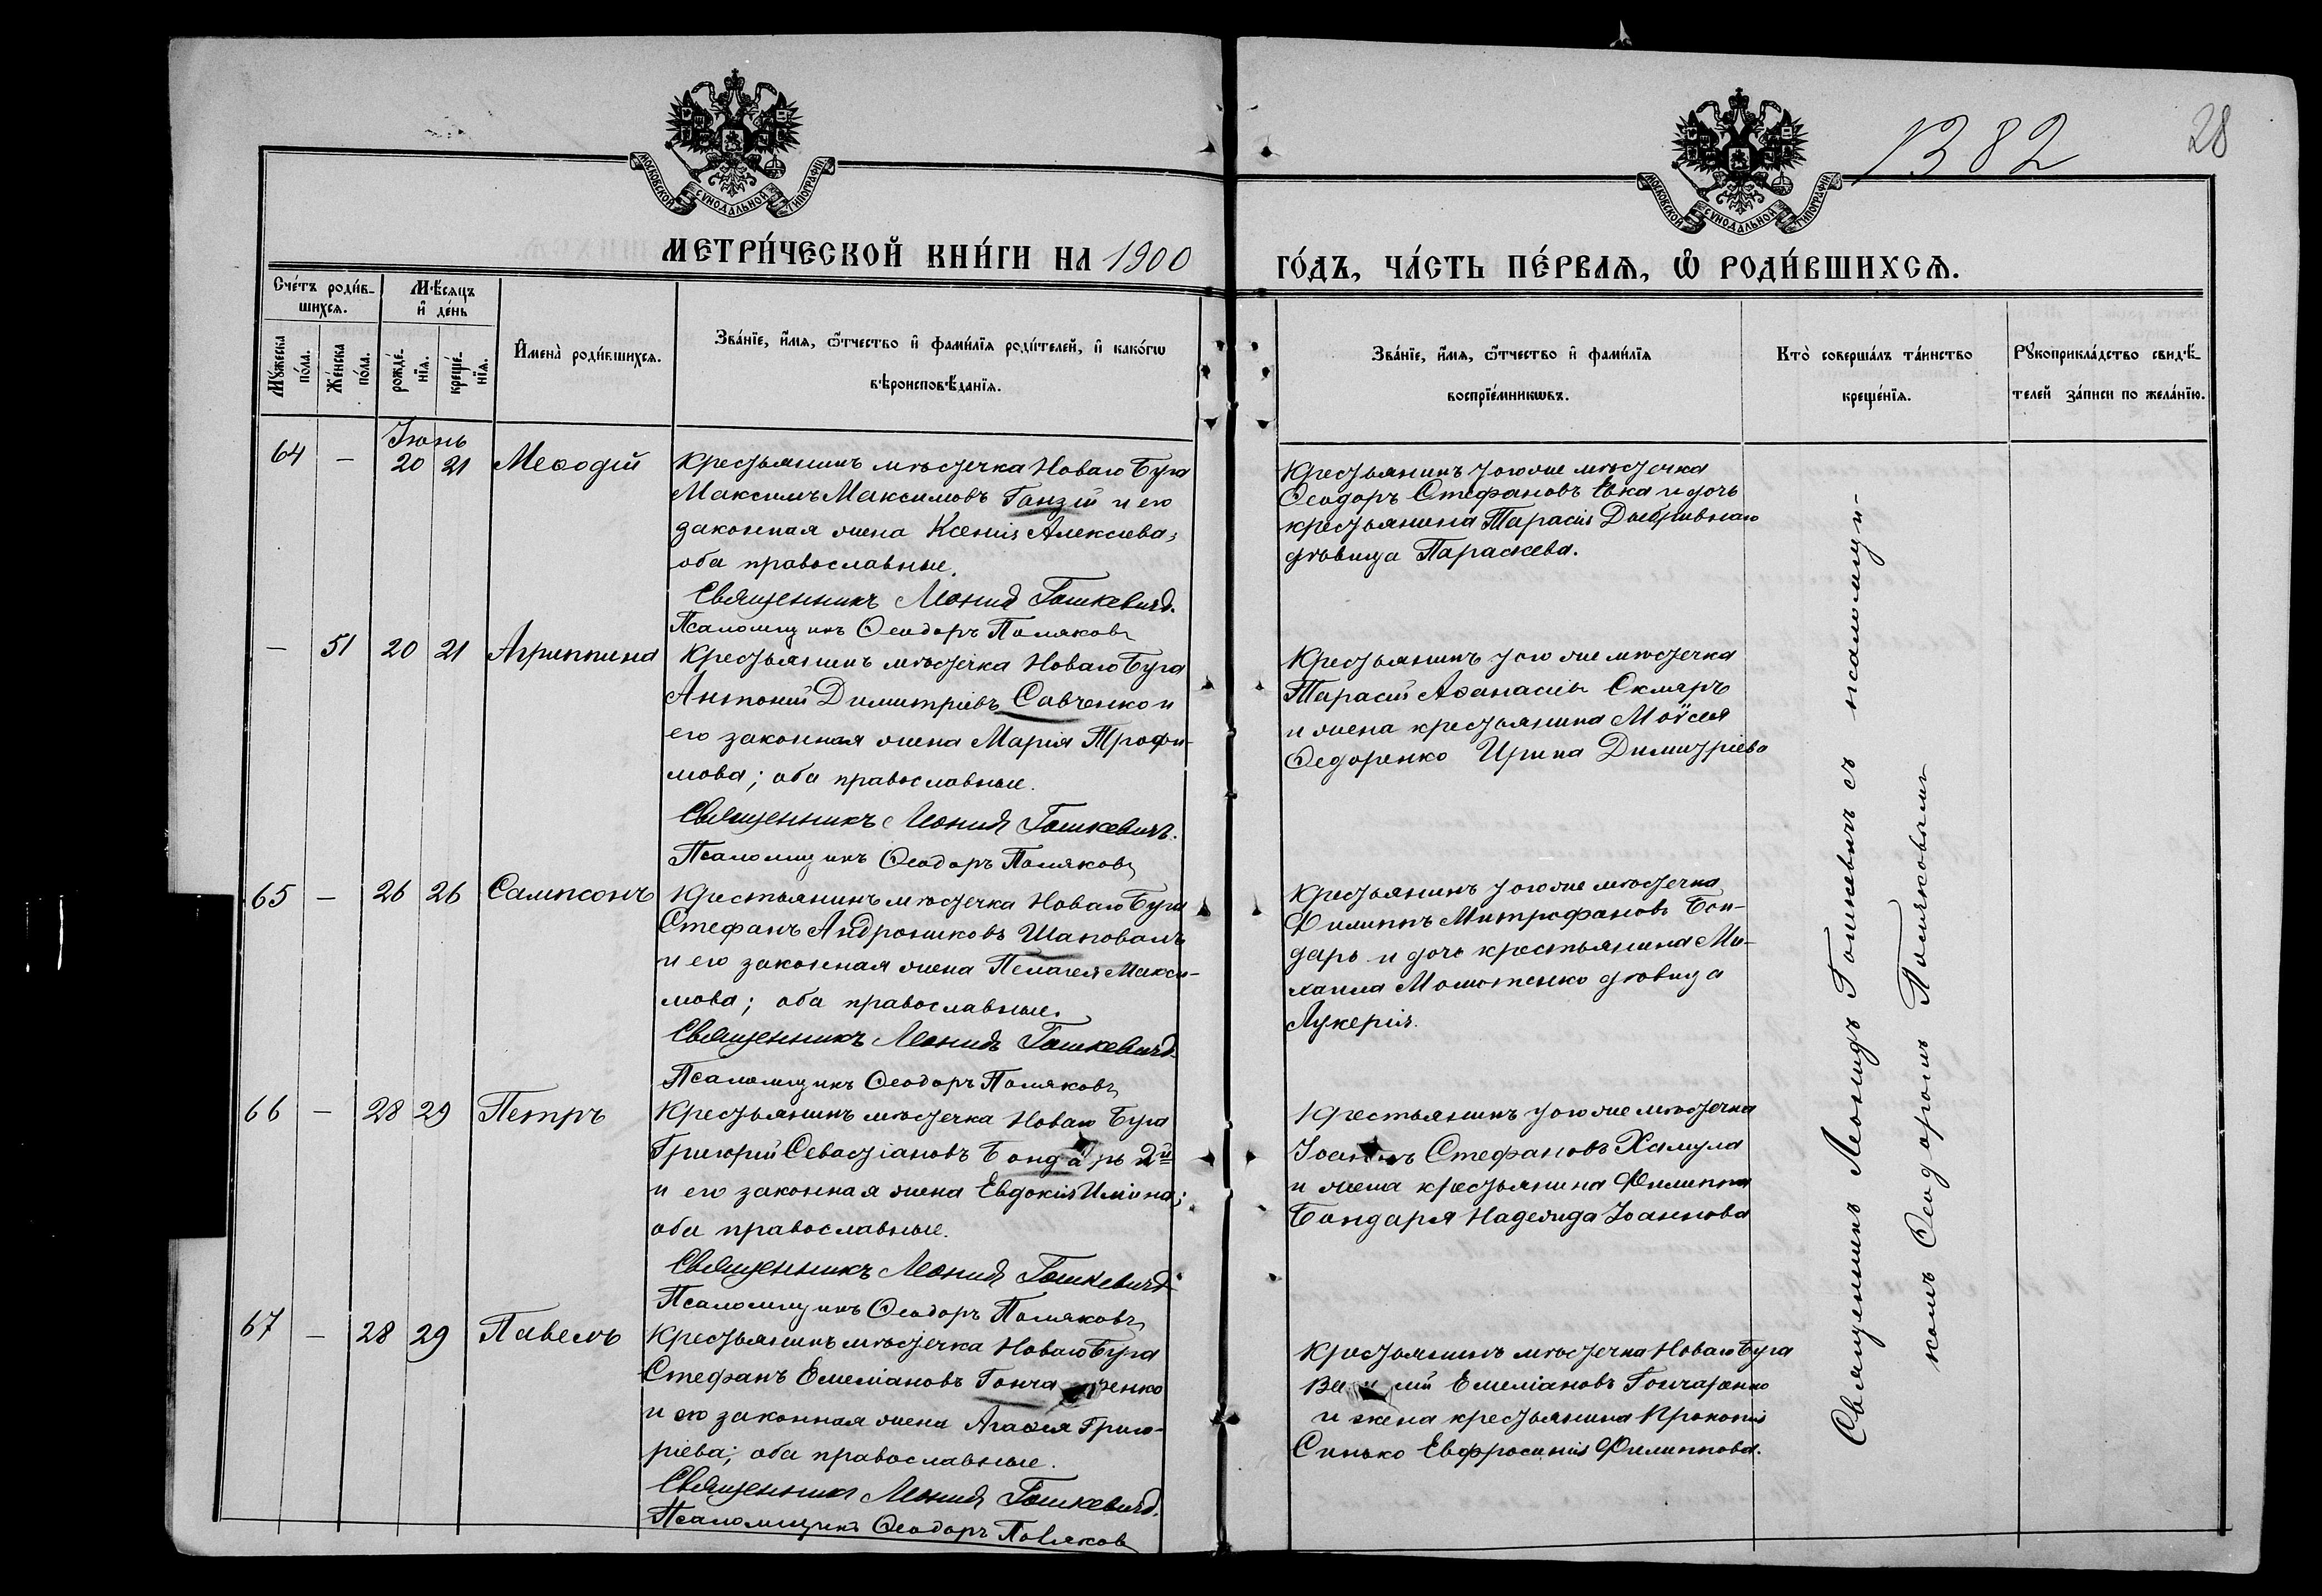 1382
28
МОСКОВСКОЙ СѴНОДАЛЬНОЙ ТИПОГРАФІИ
МОСКОВСКОЙ СѴНОДАЛЬНОЙ ТИПОГРАФІИ
МЕТРИ́ЧЕСКОЙ КНИ́ГИ НА 1900
ГО́ДЪ, ЧА́СТЬ ПЕ́РВАѦ, Ѡ҆ РОДИ́ВШИХСѦ.
Сче́тъ роди́в-
шихсѧ.
Мѣ́сѧцъ
и҆ де́нь
Мꙋ́жеска
по́ла.
Же́нска
по́ла.
рожде́-
нїѧ.
креще́-
нїѧ.
И҆мена̀ роди́вшихсѧ.
Зва́нїе, и҆́мѧ, ѻ҆́тчество и҆ фами́лїѧ роди́телей, и҆ како́гѡ
вѣроисповѣ́данїѧ.
Зва́нїе, и҆́мѧ, ѻ҆́тчество и҆ фами́лїѧ
воспрїе́мникѡвъ.
Кто̀ соверша́лъ та́инство
креще́нїѧ.
Рꙋкоприкла́дство свидѣ́-
телей за́писи по жела́нїю.
Іюнь
64 — 20 21 Меѳодій
Крестьянинъ мѣстечка Новаго Буга
Максимъ Максимовъ Ганзій и его
законная жена Ксенія Алексіева;
оба православные.
Священникъ Леонид Гошкевичъ.
Псаломщикъ Ѳеодоръ Поляковъ
Крестьянинъ того же мѣстечка
Ѳеодоръ Стефановъ Евка и дочь
крестьянина Тарасія
дѣвица Параскева.
— 51 20 21 Агриппина
Крестьянинъ мѣстечка Новаго Буга
Антоній Димитріевъ Савченко и
его законная жена Марія Трофи-
мова; оба православные.
Священникъ Леонид Гошкевичъ.
Псаломщикъ Ѳеодоръ Поляковъ
Крестьянинъ того же мѣстечка
Тарасій Аѳанасіев Скляръ
и жена крестьянина Моѵсея
Ѳедоренко Ирина Димитріева
65 — 26 26 Сампсонъ
Крестьянинъ мѣстечка Новаго Буга
Стефанъ Андрониковъ Шаповалъ
и его законная жена Пелагея Макси-
мова; оба православные.
Священникъ Леонидъ Гошкевичъ.
Псаломщикъ Ѳеодоръ Поляковъ
Крестьянинъ того же мѣстечка
Филиппъ Митрофановъ Бон-
дарь и дочь крестьянина Ми-
хаила дѣвица
Лукерія.
66 — 28 29 Петръ
Крестьянинъ мѣстечка Новаго Буга
Григорій Севастіановъ Бондарь 2й
и его законная жена Евдокія Иліина;
оба православные.
Священникъ Леонид Гошкевичъ
Псаломщикъ Ѳеодоръ Поляковъ
Крестьянинъ того же мѣстечка
Іоаннъ Стефановъ Хамула
и жена крестьянина Филиппа
Бондаря Надежда Іоаннова
67 — 28 29 Павелъ
Крестьянинъ мѣстечка Новаго Буга
Стефанъ Емеліановъ Гончаренко
и его законная жена Агаѳія Григо-
ріева; оба православные.
Священникъ Леонид Гошкевичъ.
Псаломщикъ Ѳеодоръ Поляков
Крестьянинъ мѣстечка Новаго Буга
Василій Емеліановъ Гончаренко
и жена крестьянина Прокопія
Синько Евфросинія Филиппова.
Священникъ Леонидъ Гошкевичъ съ псаломщи-
комъ Ѳеодоромъ Поляковымъ